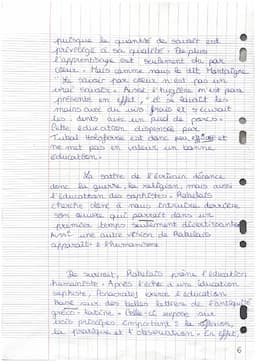 puisque la quantité de savoir est
privilégié à sa qualité. De plus
l'apprentissage est seulement du par
cœur. Mais comme nous le dit Montaigne
"Le savoir par cœur n'est pas un
vrai savoir". Aussi l'hygiène n'est pas
présente en effet, "il se lavait les
mains avec du vin frais et s'écurait
les dents avec un pied de porc".
Cette éducation dispensée par
Tubal Holoferne est donc et
ne met pas en valeurs un bonne
éducation.
La satire de l'écrivain dénonce
donc la guerre, la religion, mais aussi
l'éducation des sophistes. Rabelais
cherche donc à nous introduire derrière
son œuvre qui parrait dans un
premier temps seulement divertissante
une autre vision de Rabelais
apparaît : l'humanisme
De surcroit, Rabelais prône l'éducation
humaniste. Après l'échec d'une éducation
sophiste, Ponocrates exerce l'éducation
basé sur des belles lettres de l'Antiquité
gréco-latine. Celle-ci repose sur
trois principes important : la réflexion,
la pratique et l'observation. En effet,
6